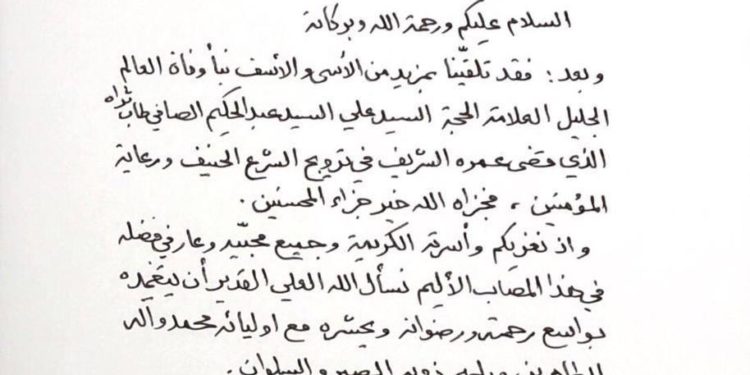 السلام عليكم ورحمة الله وبركاته
وبعد: فقد تلقّينا بمزيد من الأسى والأسف نبأ وفاة العالم
الجليل العلامة الحجة السيد علي السيد عبد الحكيم الصافي طاب ثراه
الذي قضى عمره الشريف في ترويج الشرع الحنيف ورعاية
المؤمنين ، فجزاه الله خير جزاء المحسنين .
واذ نعزيكم وأسرته الكريمة وجميع محبّيه وعارفي فضله
في هذا المصاب الأليم نسأل الله العلي القدير أن يتغمده
بواسع رحمته ورضوانه ويحشره مع اوليائه محمد وآله
الطاهرين ويلهم ذويه الصبر والسلوان .